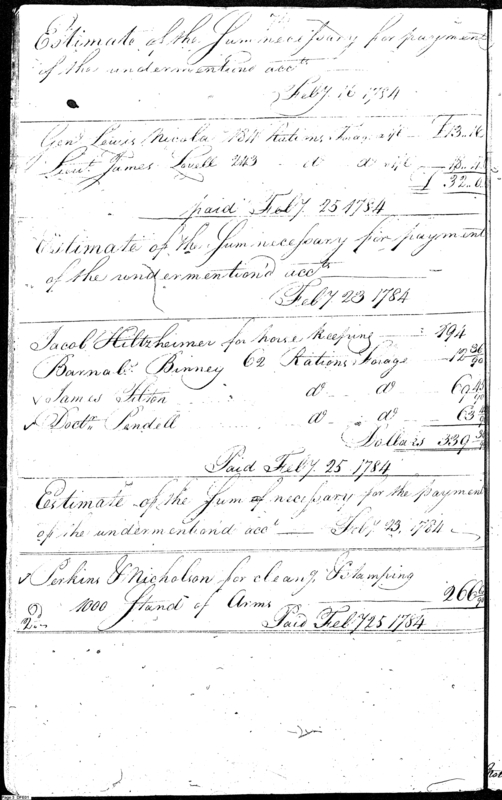 Estimate of the Sum necessary for payment
of the undermentiond acc.ts
Feby. 16 1784
Gen.l Lewis Nicola 184 Rations Forage
Lieut. James Lovell 243 do do
£ 32..0
paid Feby. 25 1784
Estimate of the Sum necessary for payment
of the undermentiond acc.ts
Feby 23 1784
Jacob Hiltzheimer for horse keeping 194
Barnab.s Binney 62 Rations Forage 12 36/90
James Tilton do do
Doct.r do do 63
Dollars 339
Paid Feby. 25 1784
Estimate of the Sum of necessary for the payment
of the undermentiond acc.t Feby 23. 1784
Perkins & Nicholson for cleang. Stamping
1000 Stand of Arms 266
Paid Feby 25 1784
2